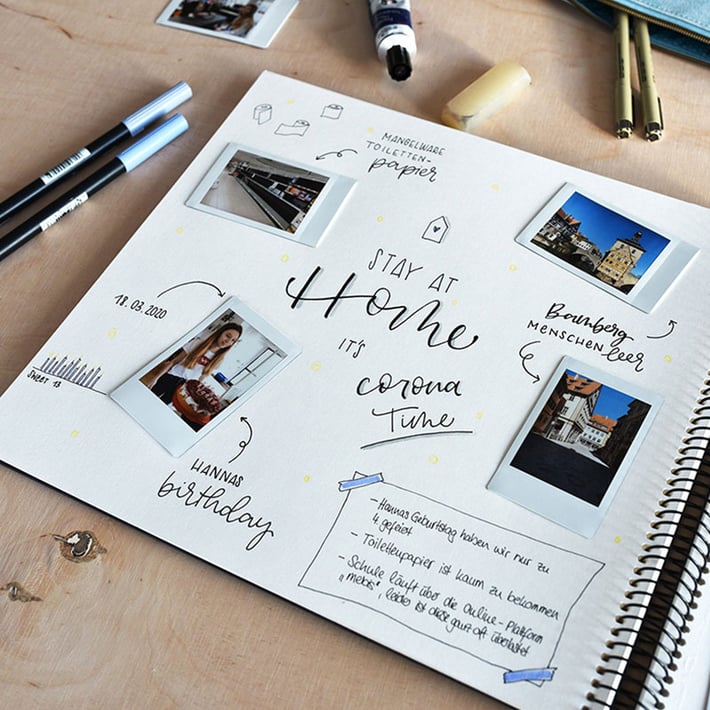 MANGELWARE
TOILETTEN-
papier
STAY AT
Home
IT'S
corona
Time
18.03.2020
SWEET 13
HANNAS
birthday
Bamberg
MENSCHENleer
- Hannas Geburtstag haben wir nur zu
4 gefeiert
- Toilettenpapier ist kaum zu bekommen
- Schule läuft über die Online-Plattform
„mebis", leider ist diese ganz oft überlastet